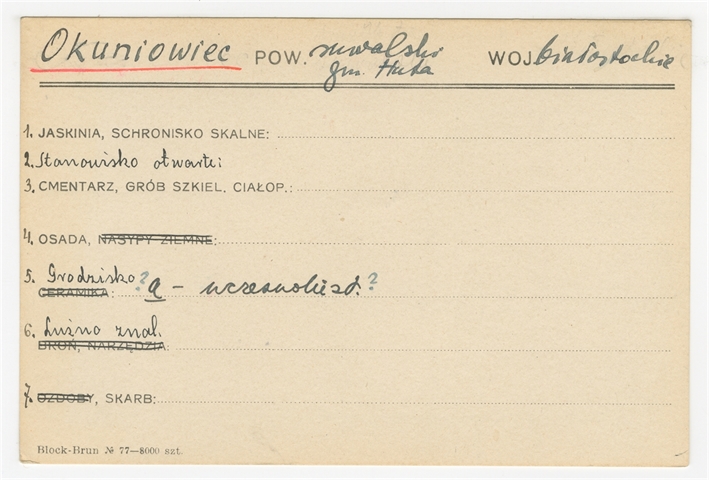 Okuniowiec POW. suwalski WOJ. białostockie
gm. Huta
1. JASKINIA, SCHRONISKO SKALNE:
2. Stanowisko otwarte:
3. CMENTARZ, GRÓB SZKIEL. CIAŁOP.:
4. OSADA, NASYPY ZIEMNE:
5. Grodzisko? a – wczesnohist.?
CERAMIKA:
6. Luźno znal.
BROŃ, NARZĘDZIA:
7. OZDOBY, SKARB:
Block-Brun № 77—8000 szt.